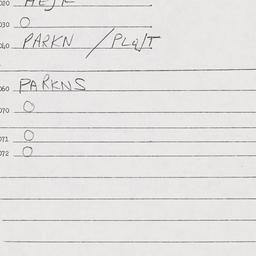 020
030 O
040 PARKN /
060 PARKNS
070 O
071 O
072 O